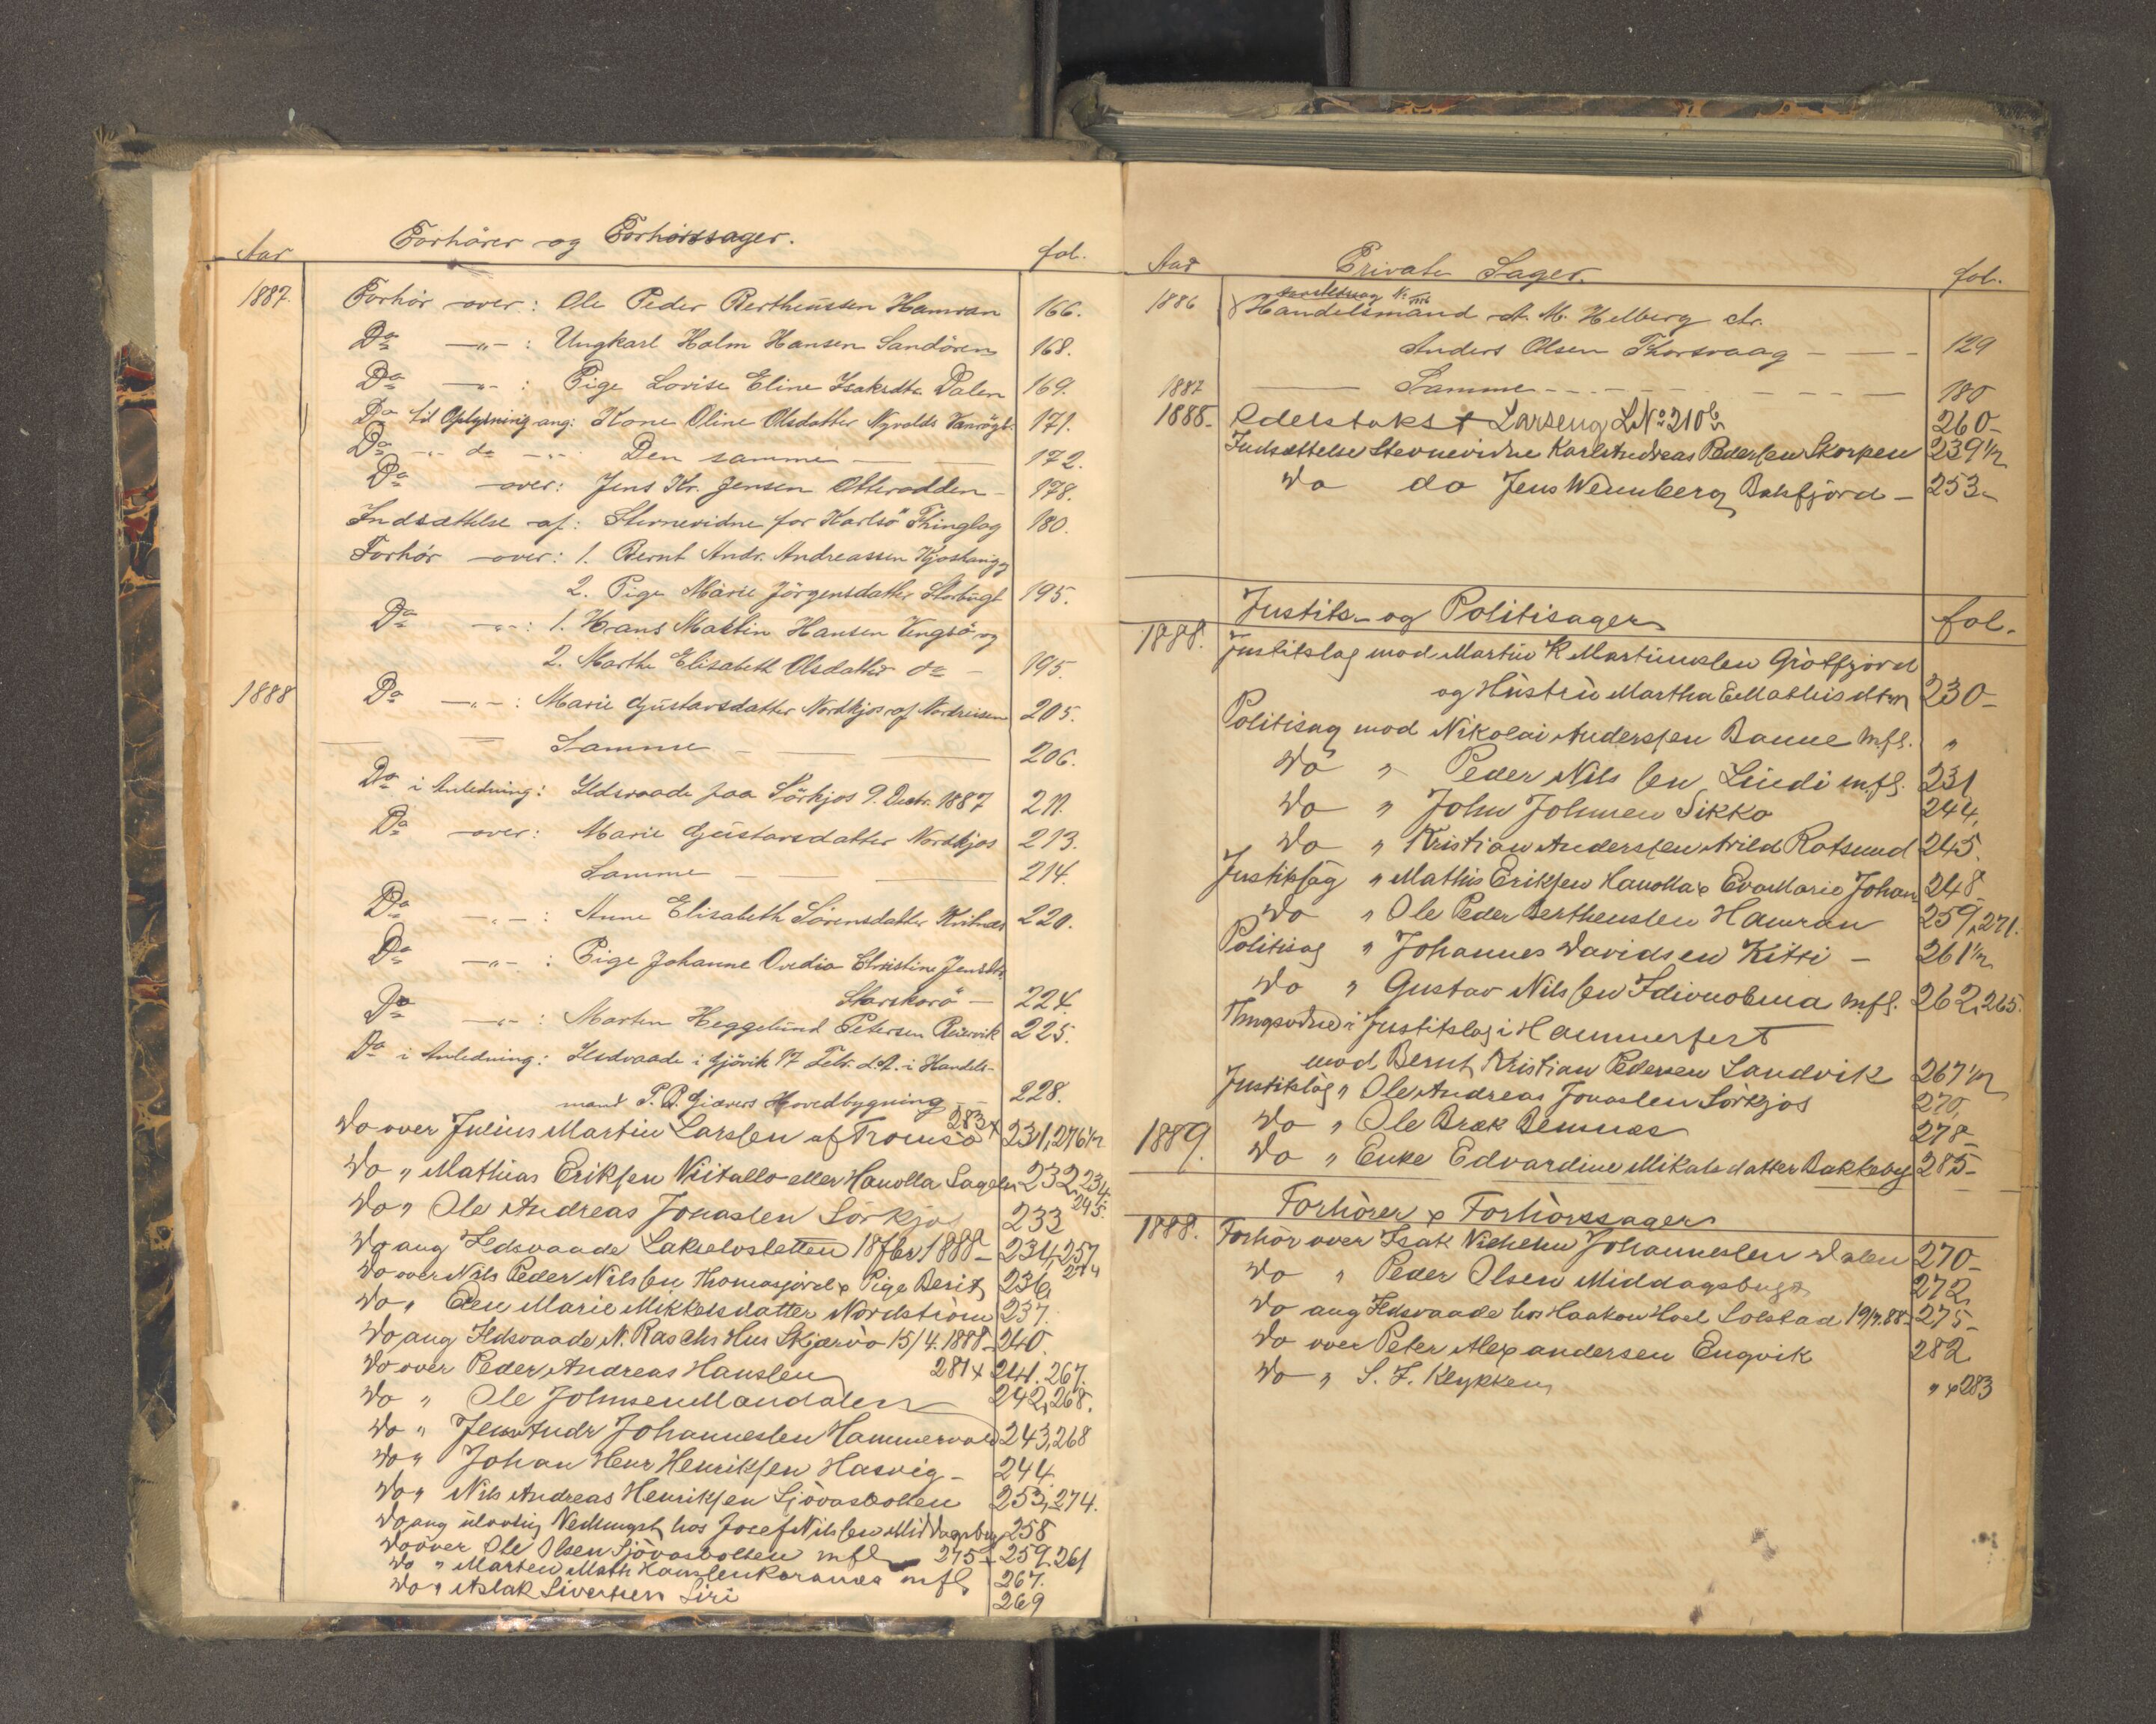 Forhörer og Forhörssager.
Aar fol.
1887. Forhör over: Ole Peder Bertheussen Hamran 166.
Do —"— : Ungkarl Holm Hansen Sandören 168.
Do —"— : Pige Lovise Eline Isaksdtr Dalen 169.
Do til Oplysning ang: Kone Oline Olsdatter Nyvolds Vanrögt. 171.
Do —"— do —"— Den samme — 172.
Do over: Jens Kr. Jensen Otteradden — 178.
Indsættelse af: Stevnevidne for Karlsö Thinglag 180.
Forhör over: 1. Bernt Andr. Andreassen og
2. Pige Marie Jörgensdatter Storbugt 195.
Do —"— : 1. Hans Martin Hansen Vengsö og
2. Marthe Elisabeth Olsdatter do — 195.
1888 Do —"— : Marie Gustavsdatter Nordkjos af Nordreisen 205.
— — Samme — — 206.
Do i Anledning: Ildsvaade paa Sörkjos 9. Decbr. 1887 211.
Do over: Marie Gustavsdatter Nordkjos 213.
Samme — — 214.
Do —"— : Anne Elisabeth Sörensdatter 220.
Do —"— : Pige Johanne Ovedia Christine Jensdtr
— 224.
Do —"— : Morten Heggelund Petersen 225.
Do i Anledning: Ildsvaade i Gjövik 17 Febr. d.A. i Handels-
mand P. Giævers Hovedbygning — 228.
Do over Julius Martin Larssen af Tromsö 283 x 231, 276½
Do " Mathias Eriksen Viitallo eller Hanolla 232, 234
Do " Ole Andreas Jonassen Sörkjos 233 245.
Do ang Ildsvaade Lakselvsletten 18 Fbr 1888 — 234, 257
Do over Nils Peder Nilssen Thomasjord & Pige Berit 236, 274
Do " Elen Marie Mikkelsdatter Nordström 237.
Do ang Ildsvaade N. Raschs Hus Skjærvö 15/4. 1888 — 240.
Do over Peder Andreas Hanssen 281 x 241. 267.
Do " Ole Johnsen Mandalen 242, 268.
Do " Jens Andr Johannessen Hammervold 243, 268
Do " Johan Henr Henriksen Hasvig — 244.
Do " Nils Andreas Henriksen Sjövasbotten 253, 274.
Do ang ulovlig hos Josef Nilssen Middagsbug 258
Do over Ole Olsen Sjövasbotten mfl 275 — 259. 261
Do " Marten Maths Hanssen mfl 267.
Do " Aslak Sivertsen Siri 269
Aar Private Sager. fol.
1886 No
Handelsmand A. M. Helberg ctr.
Anders Olsen Thorsvaag — — 129
1887 — Samme — — — 180
1888 — Edelstaks t Larseng LNo 210b 260 —
Indsættelse Stevnevidne Karl Andreas Pedersen Skorpen 239½
Do do Jens Wennberg Bakfjord — 253 —
Justits- og Politisager fol.
1888. Justitssag mod Martin K Martinussen Grötfjord
og Hustru Martha E Mathisdtr 230 —
Politisag mod Nikolai Anderssen Banne mfl. "
Do " Peder Nilssen Lindi mfl. 231
Do " John Johnsen Sikko 244,
Do " Kristian Anderssen Arild Rotsund 245.
Justitssag " Mathis Eriksen Hanolla & Eva Marie Johan 248 —
Do " Ole Peder Bertheussen Hamran 259, 271.
Politisag " Johannes Davidsen Kitti — 261½
Do " Gustav Nilssen mfl. 262, 265.
Thingsvidne i Justitssag i Hammerfest
mod Bernt Kristian Pedersen Sandvik 267½
Justitssag " Ole Andreas Jonassen Sörkjos 270,
Do " Ole Bræk Bemnæs 278 —
1889. Do " Enke Edvardine Mikalsdatter Bakkeby 285 —
Forhörer & Forhörssager
1888. Forhör over Isak Johannessen Dalen 270 —
Do " Peder Olsen Middagsbugt 272
Do ang Ildsvaade hos Haakon Hoel Solstad 19/7.88 — 275 —
Do over Peter Alexandersen Engvik 282
Do " S. F. Keykken " & 283